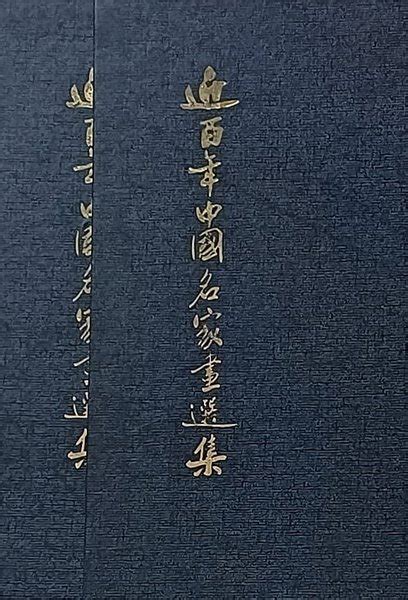 近百年中國名家畫選集
近百年中國名家畫選集